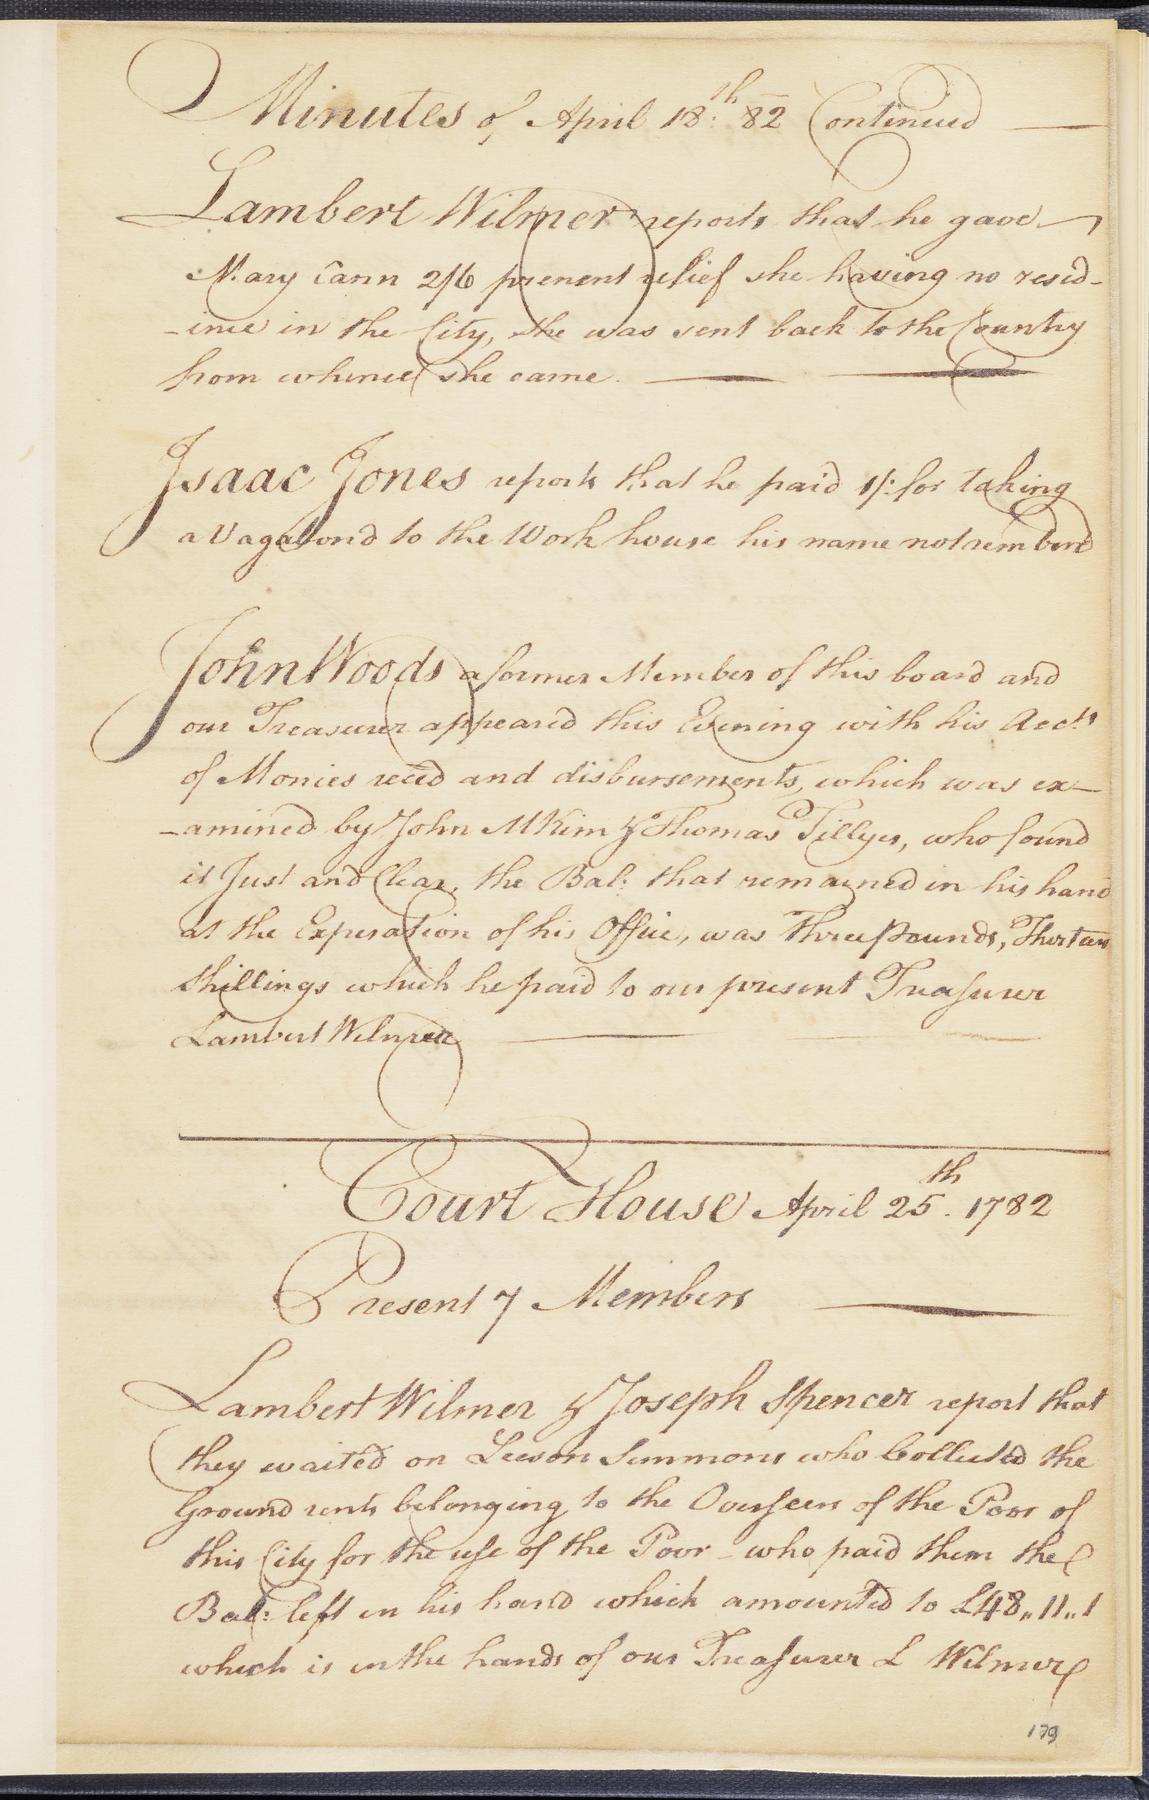 Minutes of April 18th: 82 Continued
Lambert Wilmer reports that he gave
Mary Cann 2/6 present relief she having no resid-
-ince in the City, she was sent back to the Country
from whence she came.
Isaac Jones reports that he paid 1/: for taking
a Vagabond to the Work house his name not rembered
John Woods a former Member of this board and
our Treasurer appeared this Evening with his Accts
of Monies recd and disbursements, which was ex-
-amined by John MKim & Thomas Tillyer, who found
it Just and Clear, the Bal: that remained in his hand
at the Experation of his Office, was Three Pounds, Thirteen
shillings which he paid to our present Treasurer
Lambert Wilmer
Court House April 25th. 1782
Present 7 Members
Lambert Wilmer & Joseph Spencer report that
they waited on Leeson Simmons who Collected the
Ground rents belonging to the Overseers of the Poor of
this City for the use of the Poor - who paid them the
Bal: left in his hand which amounted to £48,,11,,1
which is in the hands of our Treasurer L Wilmer
179